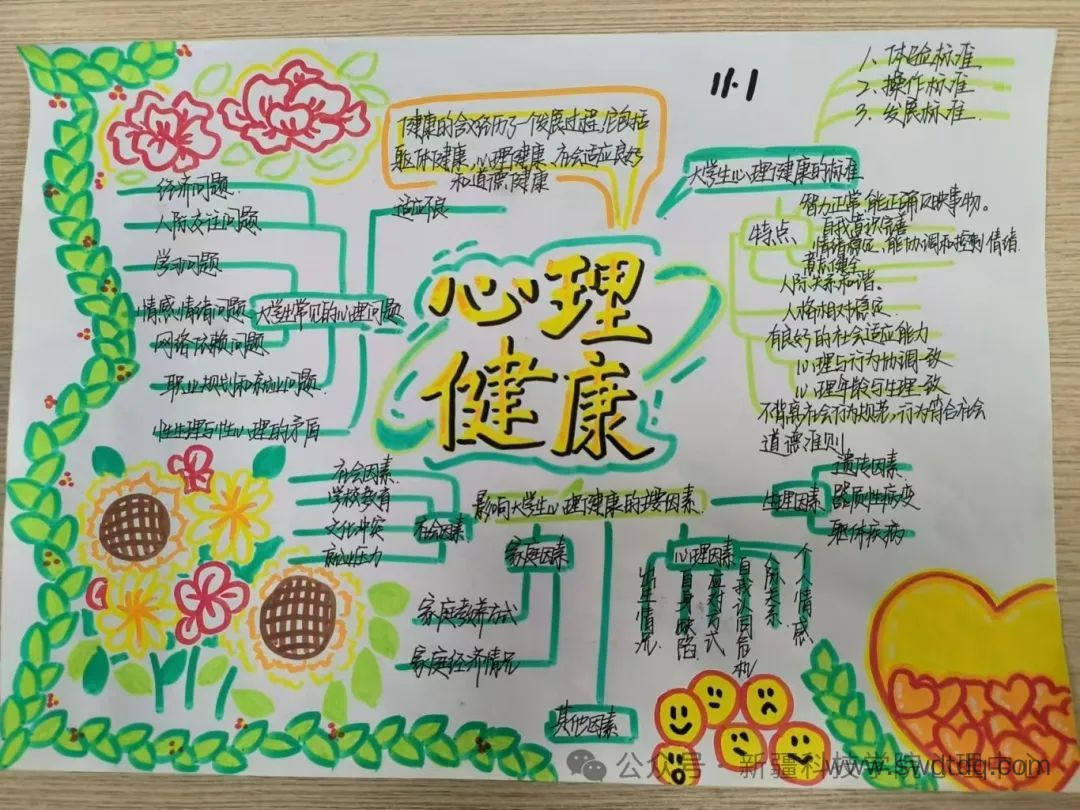 11.1
1、体验标准
2、操作标准
3、发展标准
健康的含义经历了一个发展过程,它包括
躯体健康、心理健康、社会适应良好
和道德健康
大学生心理健康的标准
特点
智力正常,能正确反映事物。
自我意识完善
情绪稳定、能协调和控制情绪
意志健全
人际关系和谐。
人格相对稳定
有良好的社会适应能力
心理与行为协调一致
心理年龄与生理一致
不背离社会行为规范,行为符合社会
道德准则
心理
健康
大学生常见的心理问题
适应不良
经济问题
人际交往问题
学习问题
情感情绪问题
网络依赖问题
职业规划和就业问题
性生理与性心理的矛盾
影响大学生心理健康的主要因素
社会因素
社会因素
学校教育
文化冲突
就业压力
家庭因素
家庭教养方式
家庭经济情况
心理因素
出生情况
自身缺陷
应对方式
自我认同危机
人际关系
个人情感
生理因素
遗传因素
器质性病变
躯体疾病
其他因素
公众号·新疆科技学院
www.swdtdq.com